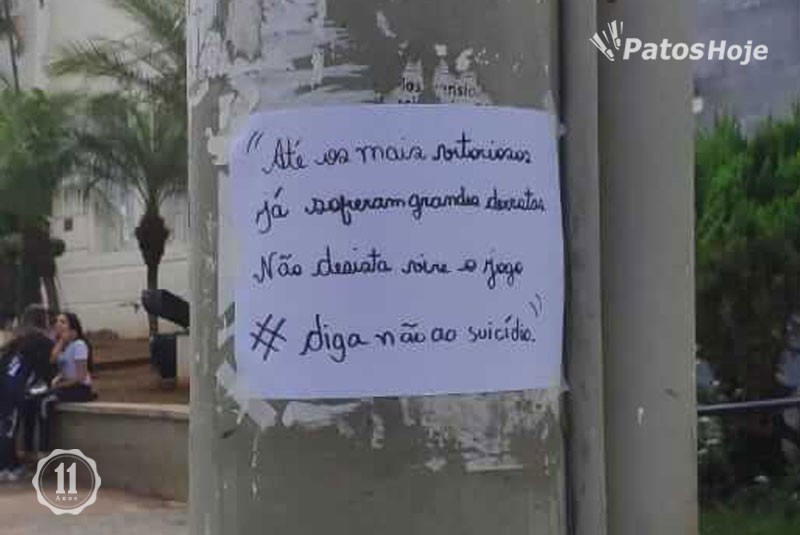 PatosHoje
"Até os mais vitoriosos
já soferam grandes derrotas
Não desista vire o jogo
# diga não ao suicídio."
11
Anos